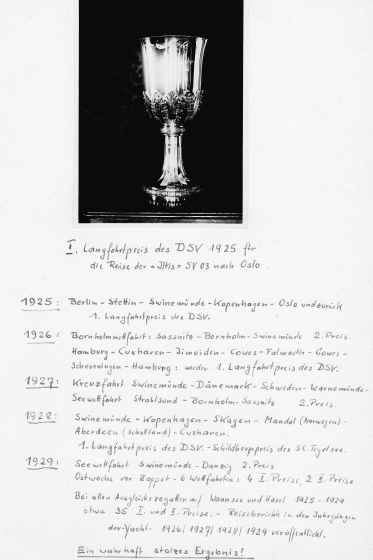 I. Langfahrtpreis des DSV 1925 für
die Reise der "Iltis" SV 03 nach Oslo.
1925: Berlin - Stettin - Swinemünde - Kopenhagen - Oslo und zurück
1. Langfahrtpreis des DSV.
1926: Bornholmwettfahrt: Sassnitz - Bornholm - Swinemünde 2. Preis.
Hamburg - Cuxhaven - Ijmuiden - Cowes - Falmouth - Cowes -
Scheveningen - Hamburg: wieder 1. Langfahrtpreis des DSV.
1927: Kreuzfahrt Swinemünde - Dänemark - Schweden - Warnemünde -
Seewettfahrt Stralsund - Bornholm - Sassnitz 2. Preis.
1928: Swinemünde - Kopenhagen - Skagen - Mandal (Norwegen) -
Aberdeen (Schottland) - Cuxhaven.
1. Langfahrtpreis des DSV. - Schildhornpreis des SC. Tegelsee.
1929: Seewettfahrt Swinemünde - Danzig 2. Preis
Ostwoche vor Zoppot - 6 Wettfahrten: 4 I. Preise, 2 II. Preise
Bei allen Ausgleichsregatten auf Wannsee und Havel 1925 - 1929
etwa 35 I. und II. Preise. - Reiseberichte in den Jahrgängen
der "Yacht" 1926/1927/1928/1929 veröffentlicht.
Ein wahrhaft stolzes Ergebnis!